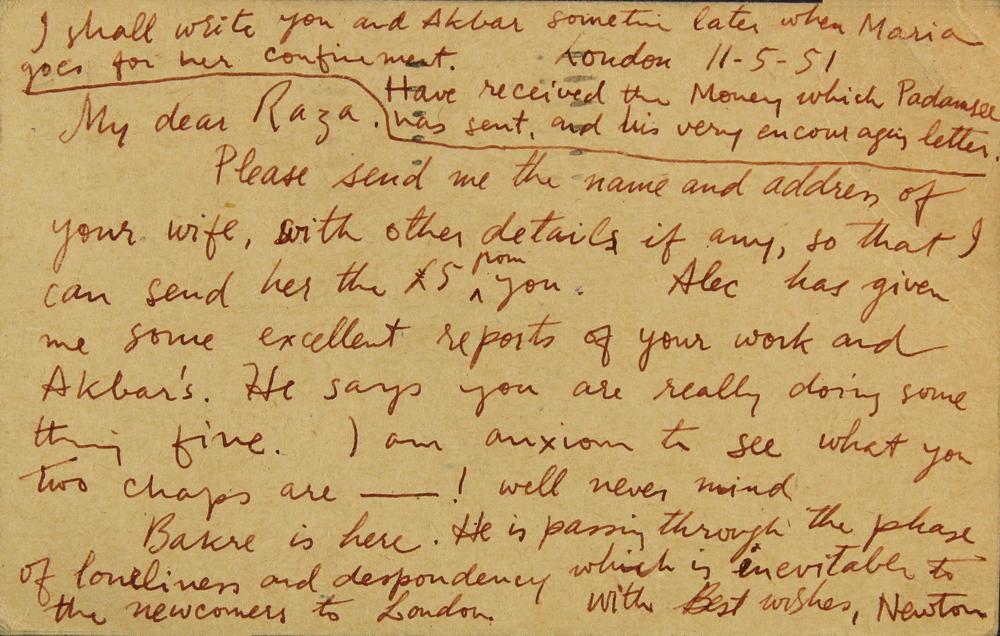 I shall write you and Akbar sometim later when Maria
goes for her confinement. London 11-5-51
Have received the Money which Padamsee
My dear Raza. has sent, and his very encouraging letter.
Please send me the name and address of
your wife, with other details if any, so that I
can send her the £5 from you. Alec has given
me some excellent reports of your work and
Akbar's. He says you are really doing some
thing fine. I am anxious to see what you
two chaps are —— ! well never mind
Bakre is here. He is passing through the phase
of loneliness and despondency which is inevitable to
the newcomers to London. With Best wishes, Newton